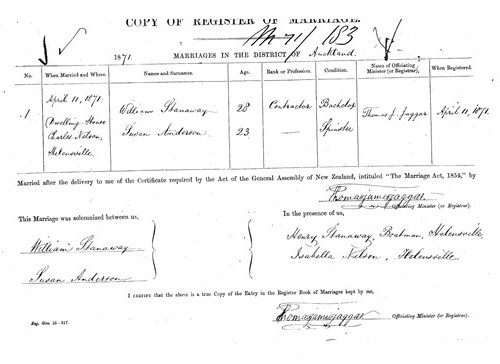 COPY OF REGISTER OF MARRIAGE.
M 71/183
1871. MARRIAGES IN THE DISTRICT OF Auckland.
No. When Married and Where. Names and Surnames. Age. Rank or Profession. Condition. Name of Officiating Minister (or Registrar). When Registered.
1 April 11, 1871. William Stanaway 28 Contractor Bachelor Thomas J. Jaggar April 11, 1871.
(Dwelling House Susan Anderson 23 — Spinster
Charles Nelson,
Helensville.
Married after the delivery to me of the Certificate required by the Act of the General Assembly of New Zealand, intituled "The Marriage Act, 1854," by
Thomas James Jaggar
Officiating Minister (or Registrar).
This Marriage was solemnized between us,
In the presence of us,
William Stanaway
Henry Stanaway, Boatman, Helensville
Isabella Nelson, Helensville
Susan Anderson
I CERTIFY that the above is a true Copy of the Entry in the Register Book of Marriages kept by me,
Thomas James Jaggar Officiating Minister (or Registrar).
Reg. Gen. 16—317.